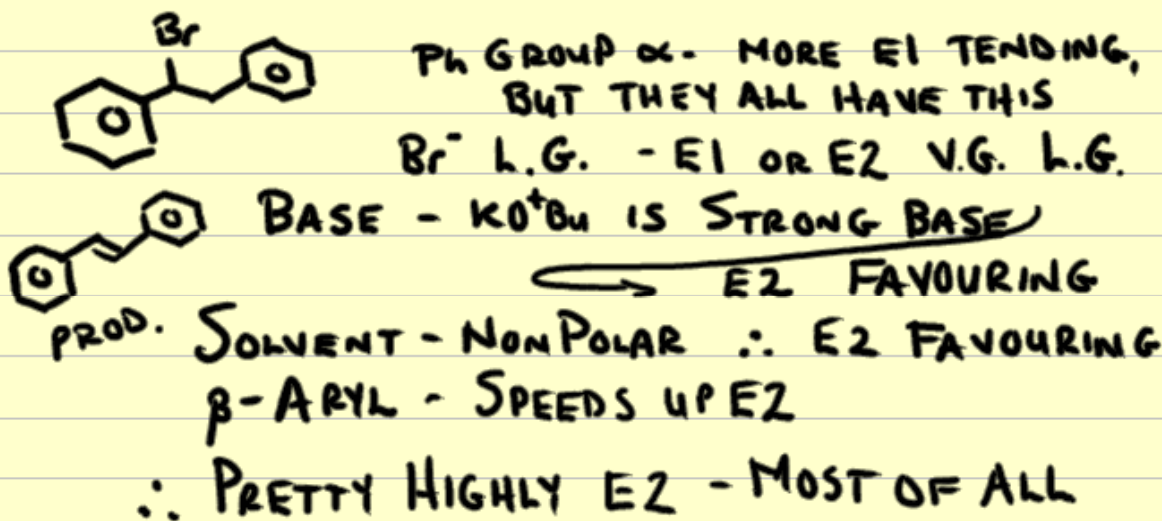 Br
Ph GROUP α- MORE E1 TENDING,
BUT THEY ALL HAVE THIS
Br⁻ L.G. - E1 OR E2 V.G. L.G.
BASE - KOᵗBu IS STRONG BASE
E2 FAVOURING
PROD. SOLVENT - NONPOLAR ∴ E2 FAVOURING
β-ARYL - SPEEDS UP E2
∴ PRETTY HIGHLY E2 - MOST OF ALL